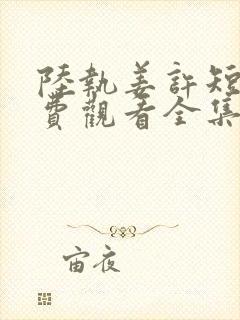 陸執姜許短
費觀看全集
宙夜